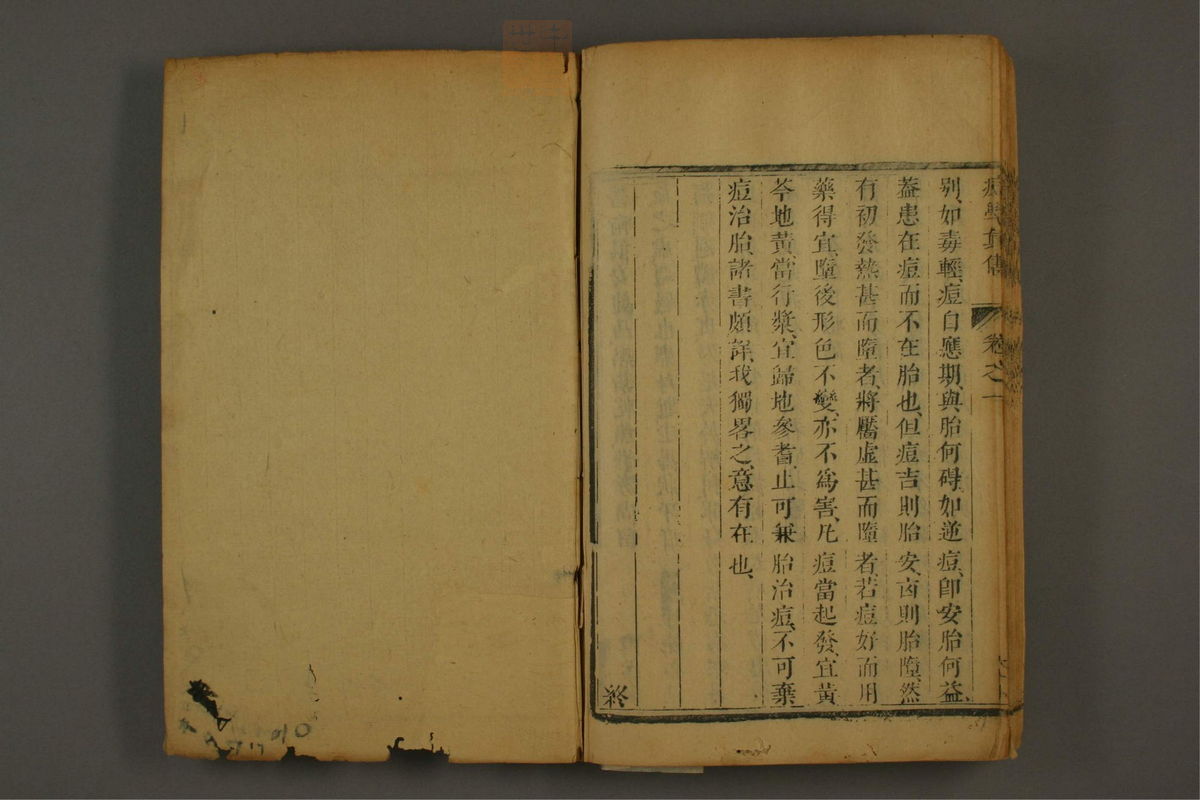 卷之一
別、如毒輕、痘自應期、與胎何碍、如逆痘、卽安胎何益、
葢患在痘而不在胎也、但痘吉則胎安、凶則胎墮、然
有初發熱甚而墮者、將靨虛甚而墮者、若痘好而用
藥得宜、墮後形色不變、亦不爲害、凡痘當起發、宜黃
芩地黃、當行漿、宜歸地參耆、止可兼胎治痘、不可棄
痘治胎、諸書頗詳、我獨畧之、意有在也、
終